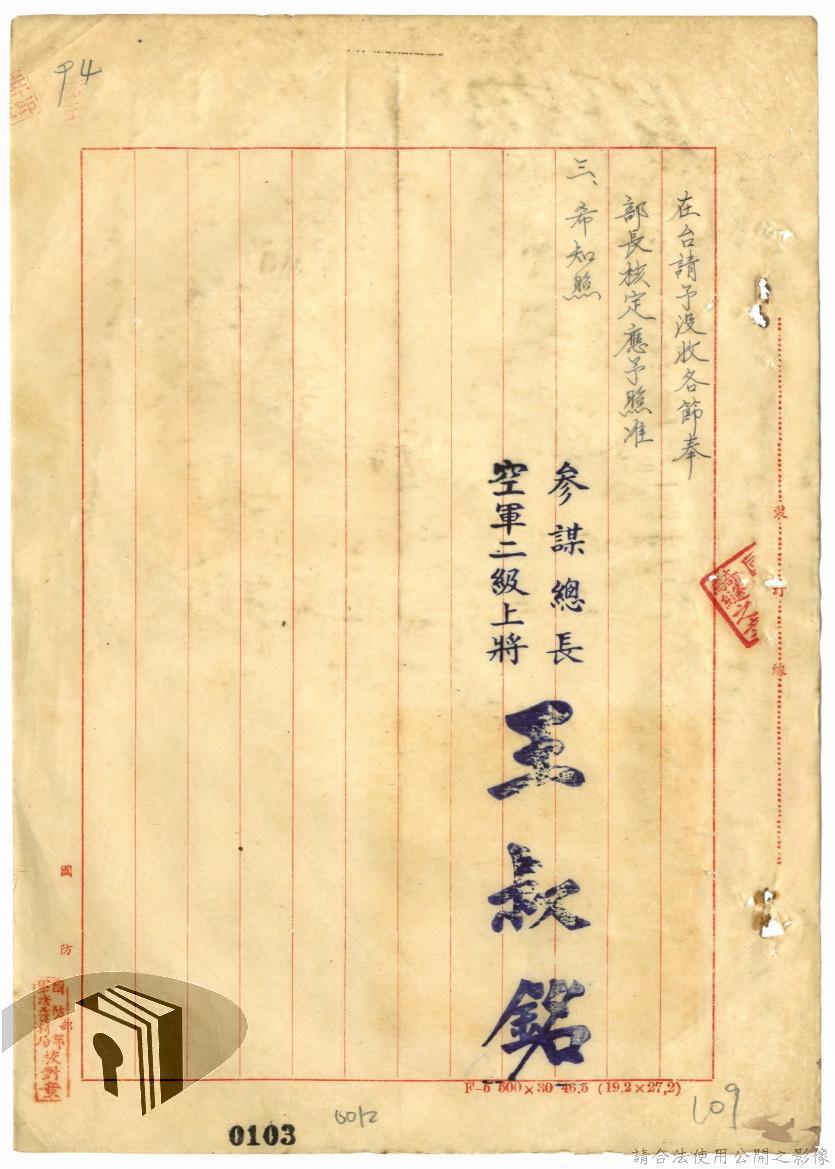 在台請予没收各節奉
部長核定應予照准
三、希知照
參謀總長
空軍二級上將
王叔銘
裝
訂
線
國防部
94
F-5 500×30 46.5 (19.2×27.2)
0103
109
請合法使用公開之影像